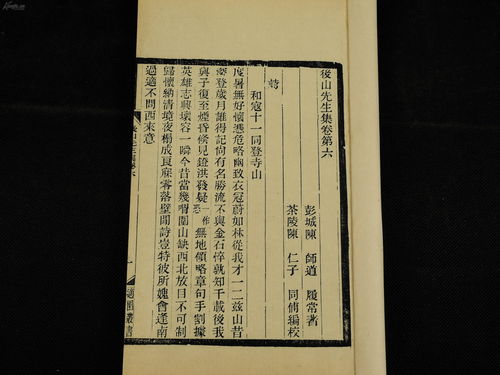 後山先生集卷第六
彭城陳 師道 履常著
茶陵陳 仁子 同俌編校
詩
和寇十一同登寺山
度暑無好懷憑危略幽致衣冠蔚如林從我才一二茲山昔
要登歲月誰得記向有名勝流不與金石倅孰知千載後我
與子復至煙昏候見鐙洪發疑一作恐無地領略章句手割據
英雄志興壞容一瞬今昔當幾喟圍山缺西北放目不可制
歸懷納清境夜榻成良寐零落壁間詩豈特彼所媿會逢南
過適不問西來意
適園叢書